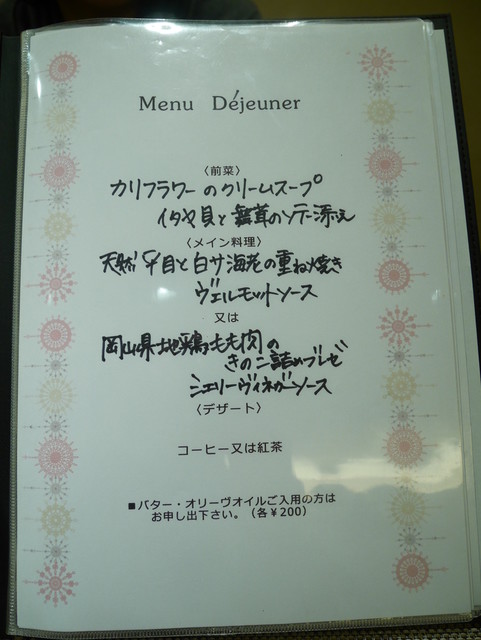 Menu Déjeuner
〈前菜〉
カリフラワーのクリームスープ
イタヤ貝と舞茸のソテー添え
〈メイン料理〉
天然平目と白サ海老の重ね焼き
ヴェルモットソース
又は
岡山県地鶏もも肉の
きのこ詰めブレゼ
シェリーヴィネガーソース
〈デザート〉
コーヒー又は紅茶
■バター・オリーヴオイルご入用の方は
お申し出下さい。（各￥200）